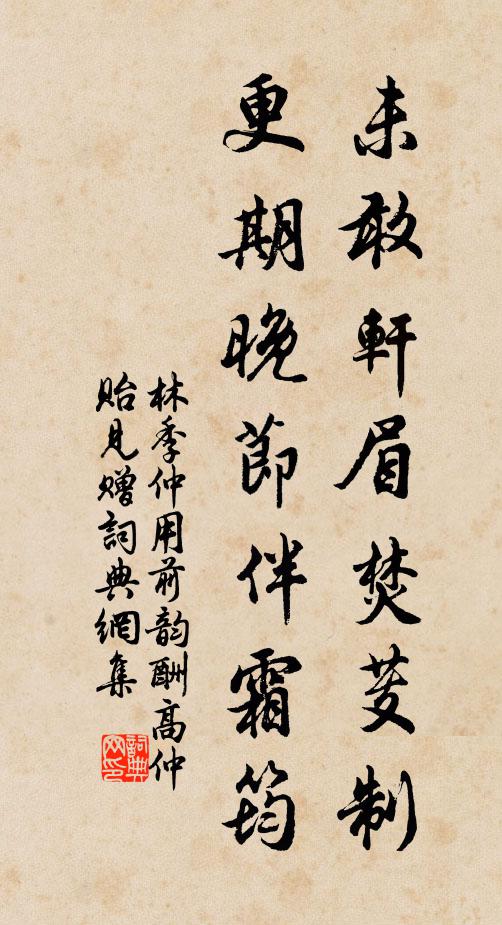 未敢軒眉焚芰制
更期晚節伴霜筠
林季仲用前韵酬高仲
貽見贈詞典網集
詞典网印